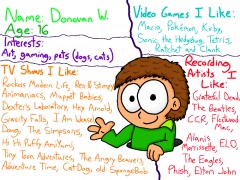 Name: Donovan W.
Age: 16
Interests:
Art, gaming, pets (dogs, cats)
TV Shows I Like:
Rockos Modern Life, Ren & Stimpy
Animaniacs, Muppet Babies,
Dexter's Laboratory, Hey Arnold,
Gravity Falls, I Am Weasel
Doug, The Simpsons,
Hi Hi Puffy AmiYumi,
Tiny Toon Adventures, The Angry Beavers,
Adventure Time, CatDog, old SpongeBob
Video Games I Like:
Mario, Pokémon, Kirby,
Sonic the Hedgehog, Tetris,
Ratchet and Clank
Recording
Artists I
Like:
Grateful Dead,
The Beatles,
CCR, Fleetwood
Mac,
Alanis
Morissette,
ELO,
The Eagles,
Phish, Elton John